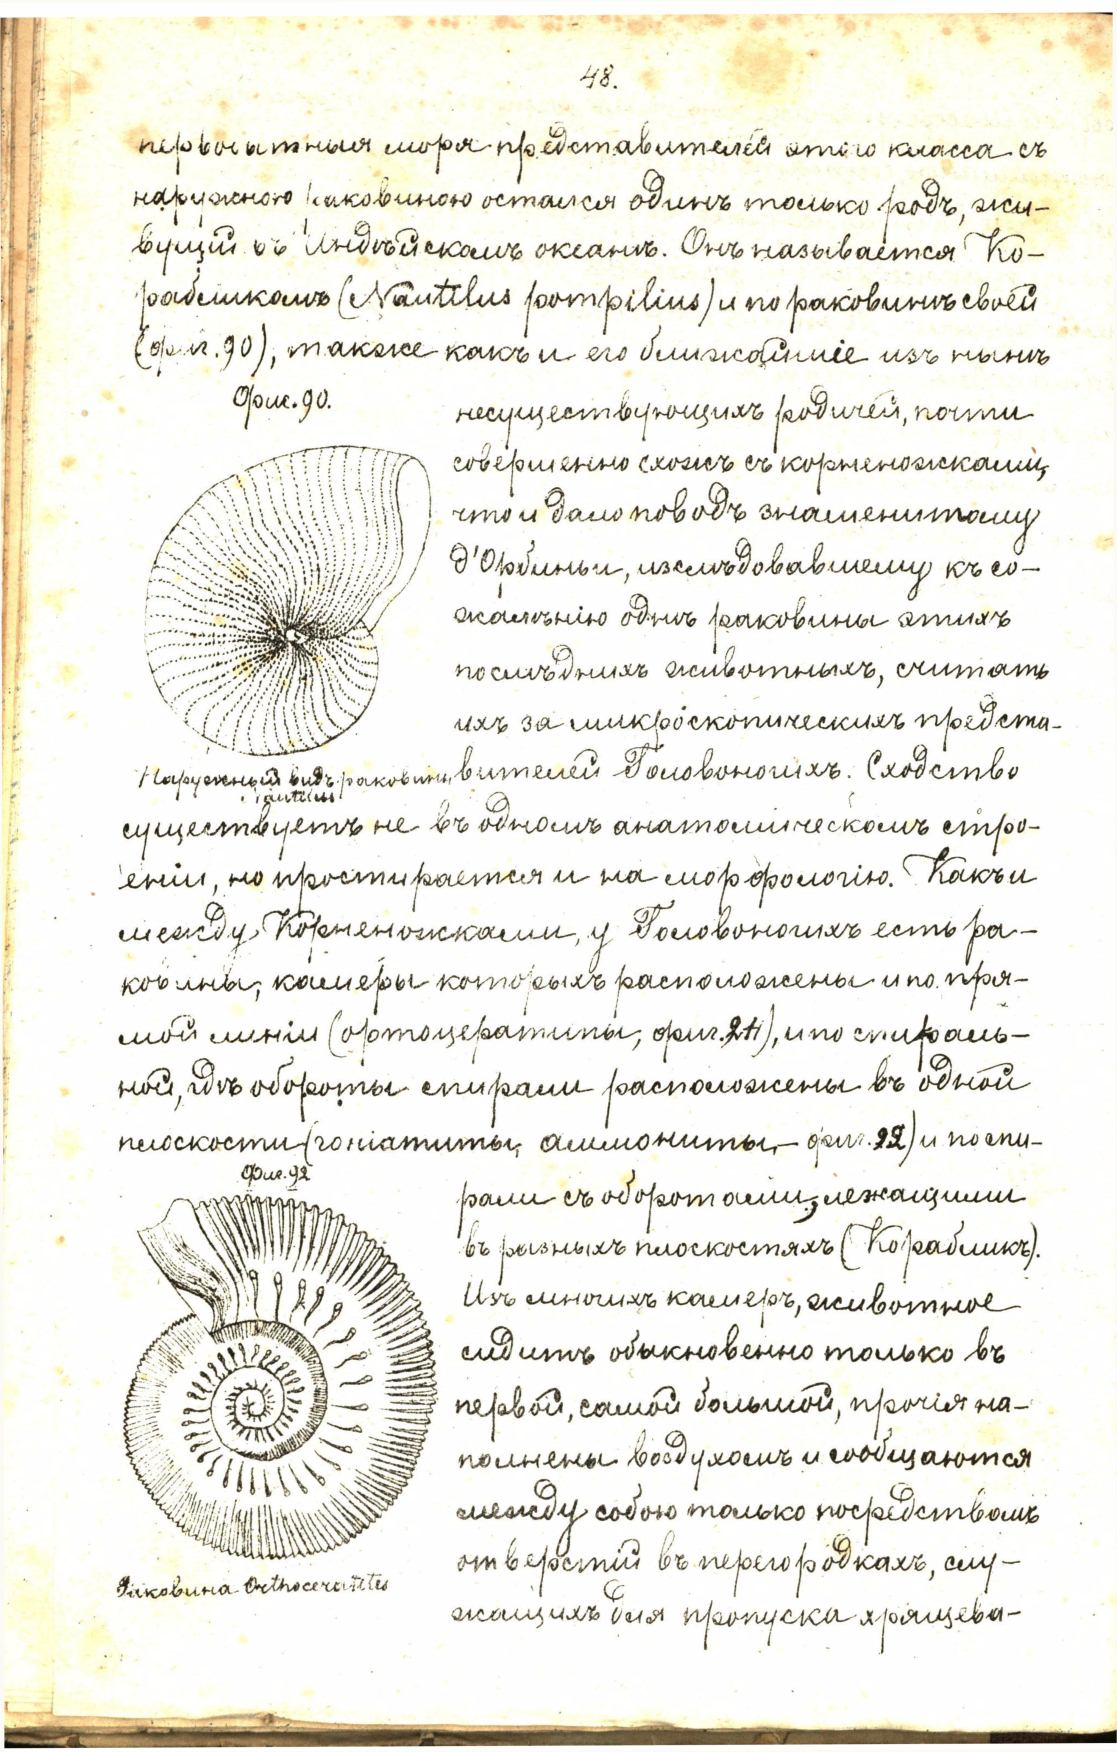 48.
первобытныя моря представителей этого класса съ
наружною раковиною остался одинъ только родъ, жи-
вущій въ Индѣйскомъ океанѣ. Онъ называется Ко-
рабликомъ (Nautilus pompilius) и по раковинѣ своей
(фиг. 90), также какъ и его ближайшіе изъ нынѣ
Фиг. 90.
несуществующихъ родичей, почти
совершенно схожъ съ корненожками,
что и дало поводъ знаменитому
д'Орбиньи, изслѣдовавшему къ со-
жалѣнію однѣ раковины этихъ
послѣднихъ животныхъ, считать
ихъ за микроскопическихъ предста-
Наружный видъ раковины
Nautilus
вителей Головоногихъ. Сходство
существуетъ не въ одномъ анатомическомъ стро-
еніи, но простирается и на морфологію. Какъ и
между Корненожками, у Головоногихъ есть ра-
ковины, камеры которыхъ расположены и по пря-
мой линіи (ортоцератиты, фиг. 24), и по спираль-
ной, гдѣ обороты спирали расположены въ одной
плоскости (гоніатиты, аммониты, - фиг. 92) и по спи-
Фиг. 92
рали съ оборотами, лежащими
въ разныхъ плоскостяхъ (Корабликъ).
Изъ многихъ камеръ, животное
сидитъ обыкновенно только въ
первой, самой большой, прочія на-
полнены воздухомъ и сообщаются
между собою только посредствомъ
отверстій въ перегородкахъ, слу-
Раковина Orthoceratites
жащихъ для пропуска хрящева-